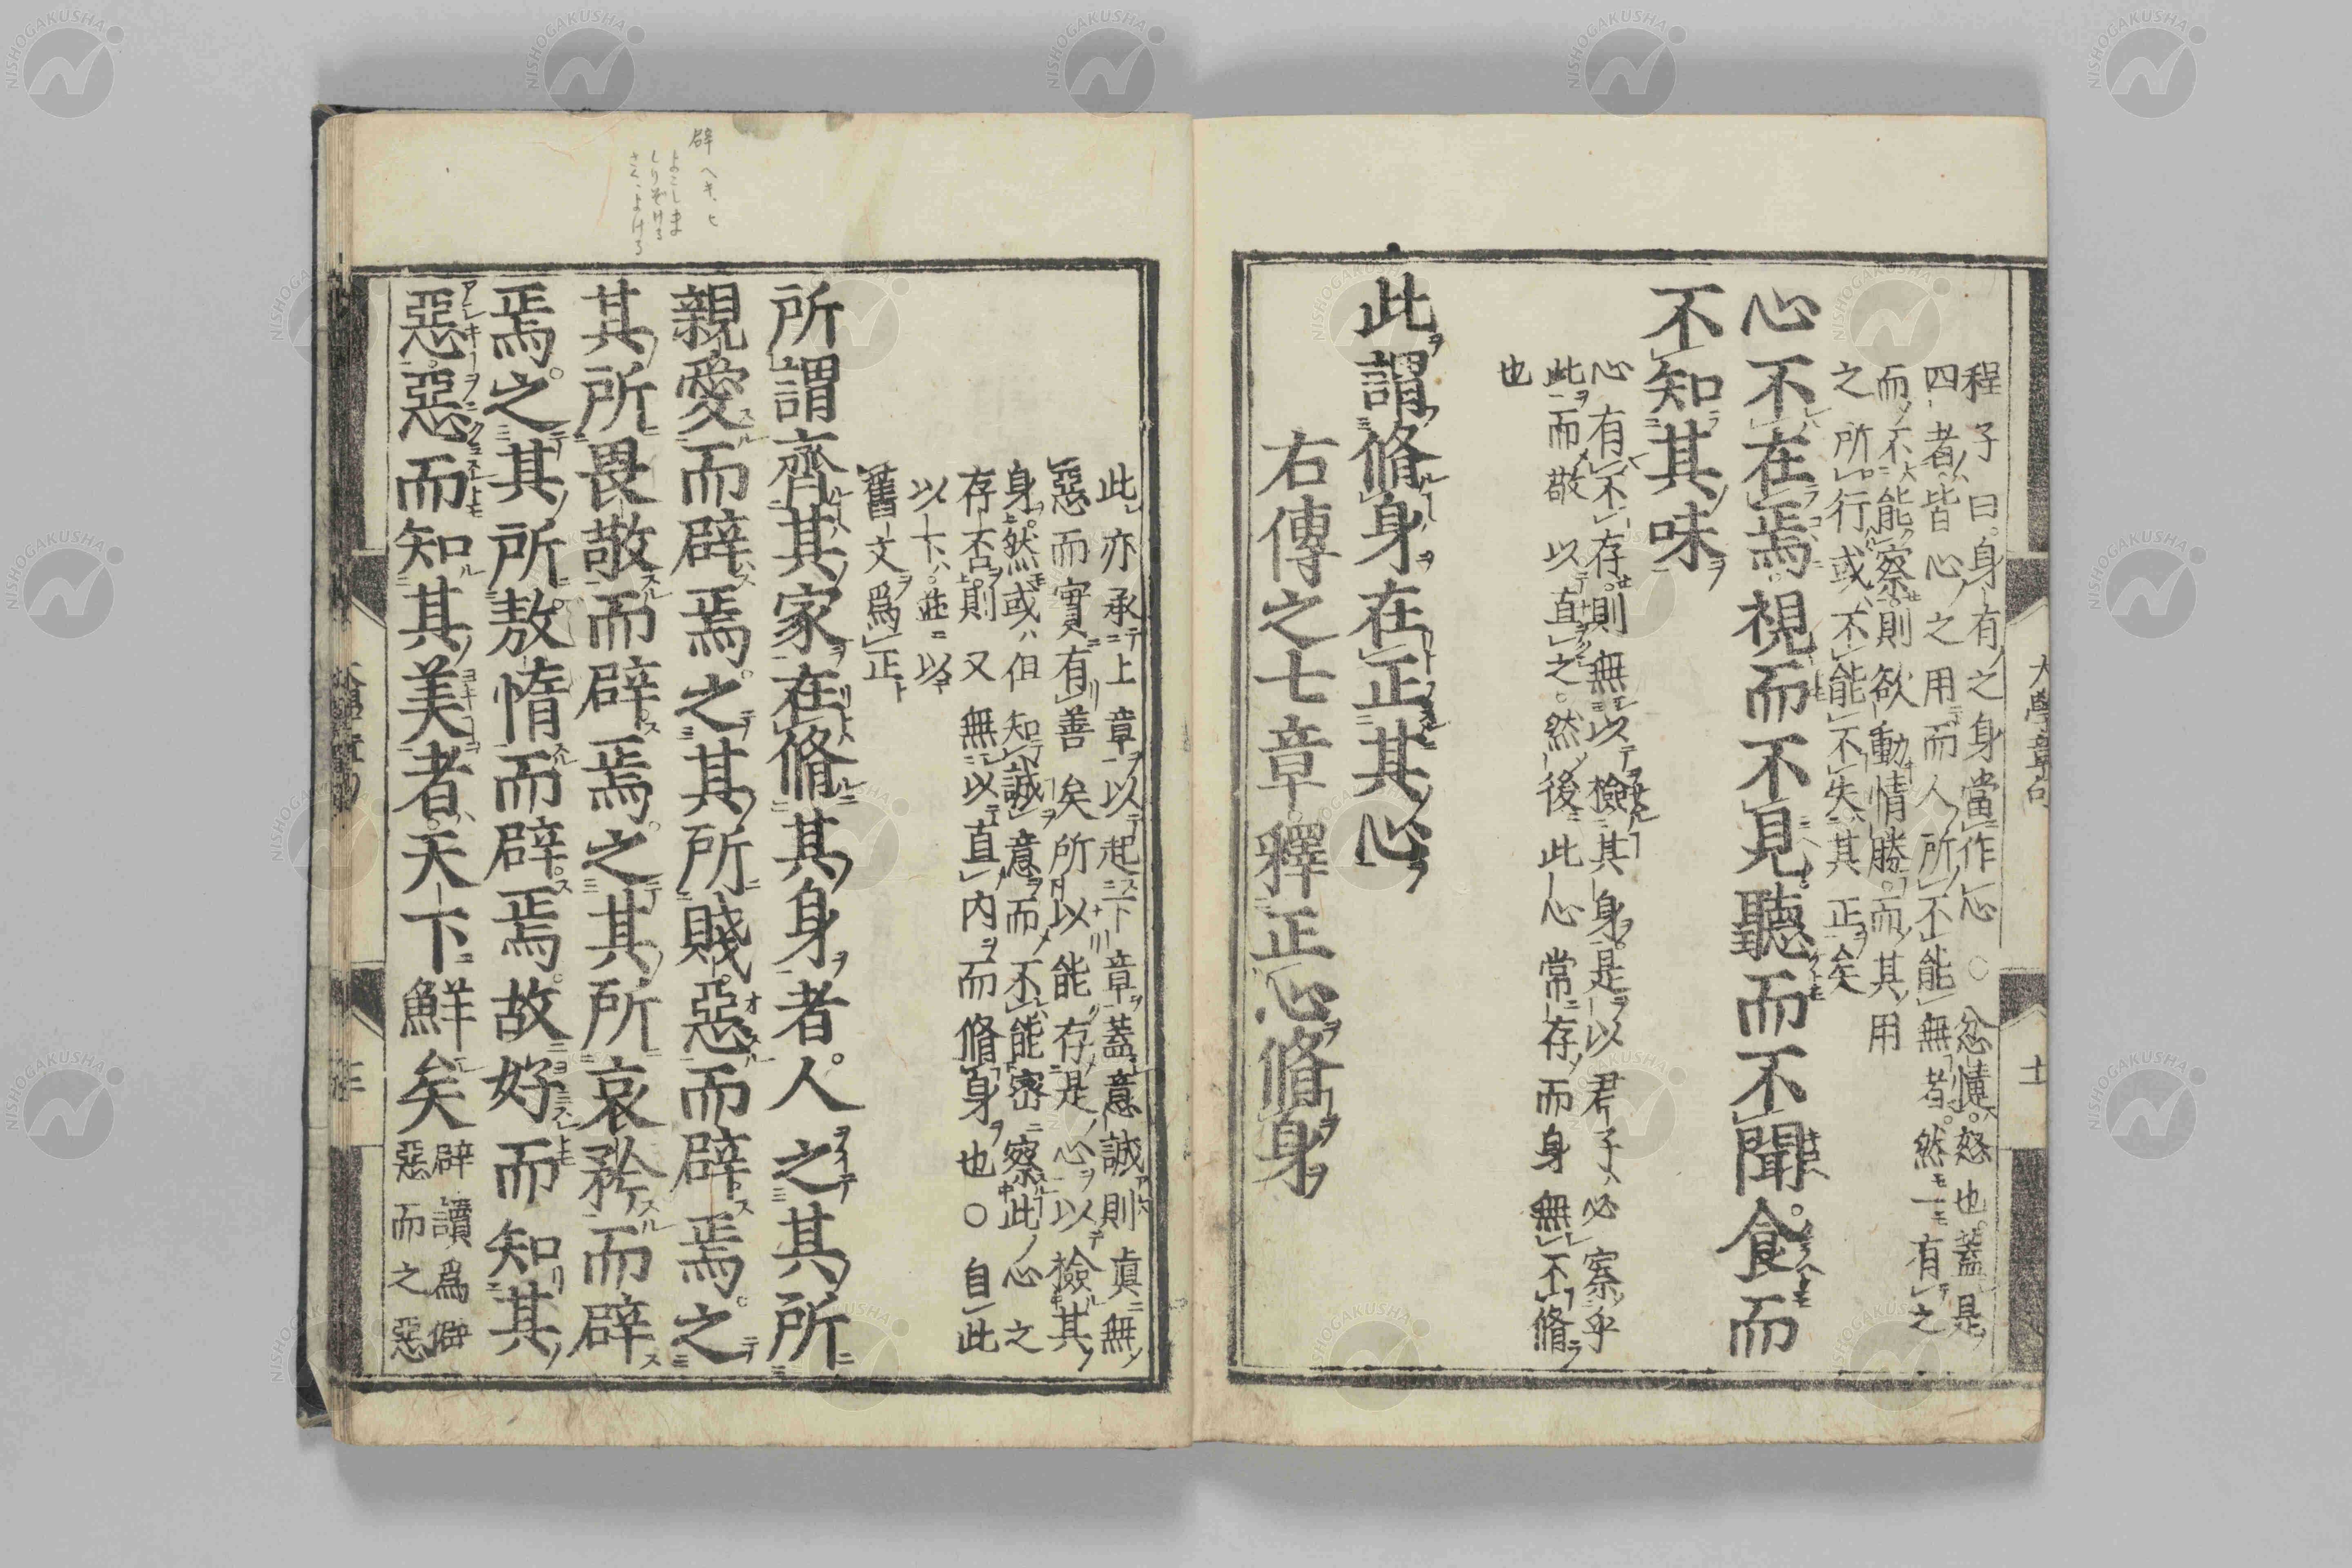 大學章句
十一
程子曰身有之身當作心○忿懥怒也蓋是
四者皆心之用而人所不能無者然一有之
而不能察則欲動情勝而其用
之所行或不能不失其正矣
心不在焉視而不見聽而不聞食而
不知其味
心有不存則無以檢其身是以君子必察乎
此而敬以直之然後此心常存而身無不脩
也
此謂脩身在正其心
右傳之七章釋正心脩身
此亦承上章以起下章蓋意誠則眞無
惡而實有善矣所以能存是心以檢其
身然或但知誠意而不能密察此心之
存否則又無以直內而脩身也○自此
以下並以
舊文爲正
所謂齊其家在脩其身者人之其所
親愛而辟焉之其所賤惡而辟焉之
其所畏敬而辟焉之其所哀矜而辟
焉之其所敖惰而辟焉故好而知其
惡惡而知其美者天下鮮矣
辟讀爲僻
惡而之惡
辟 ヘキ、ヒ
よこしま
しりぞける
さく、よける
NISHOGAKUSHA